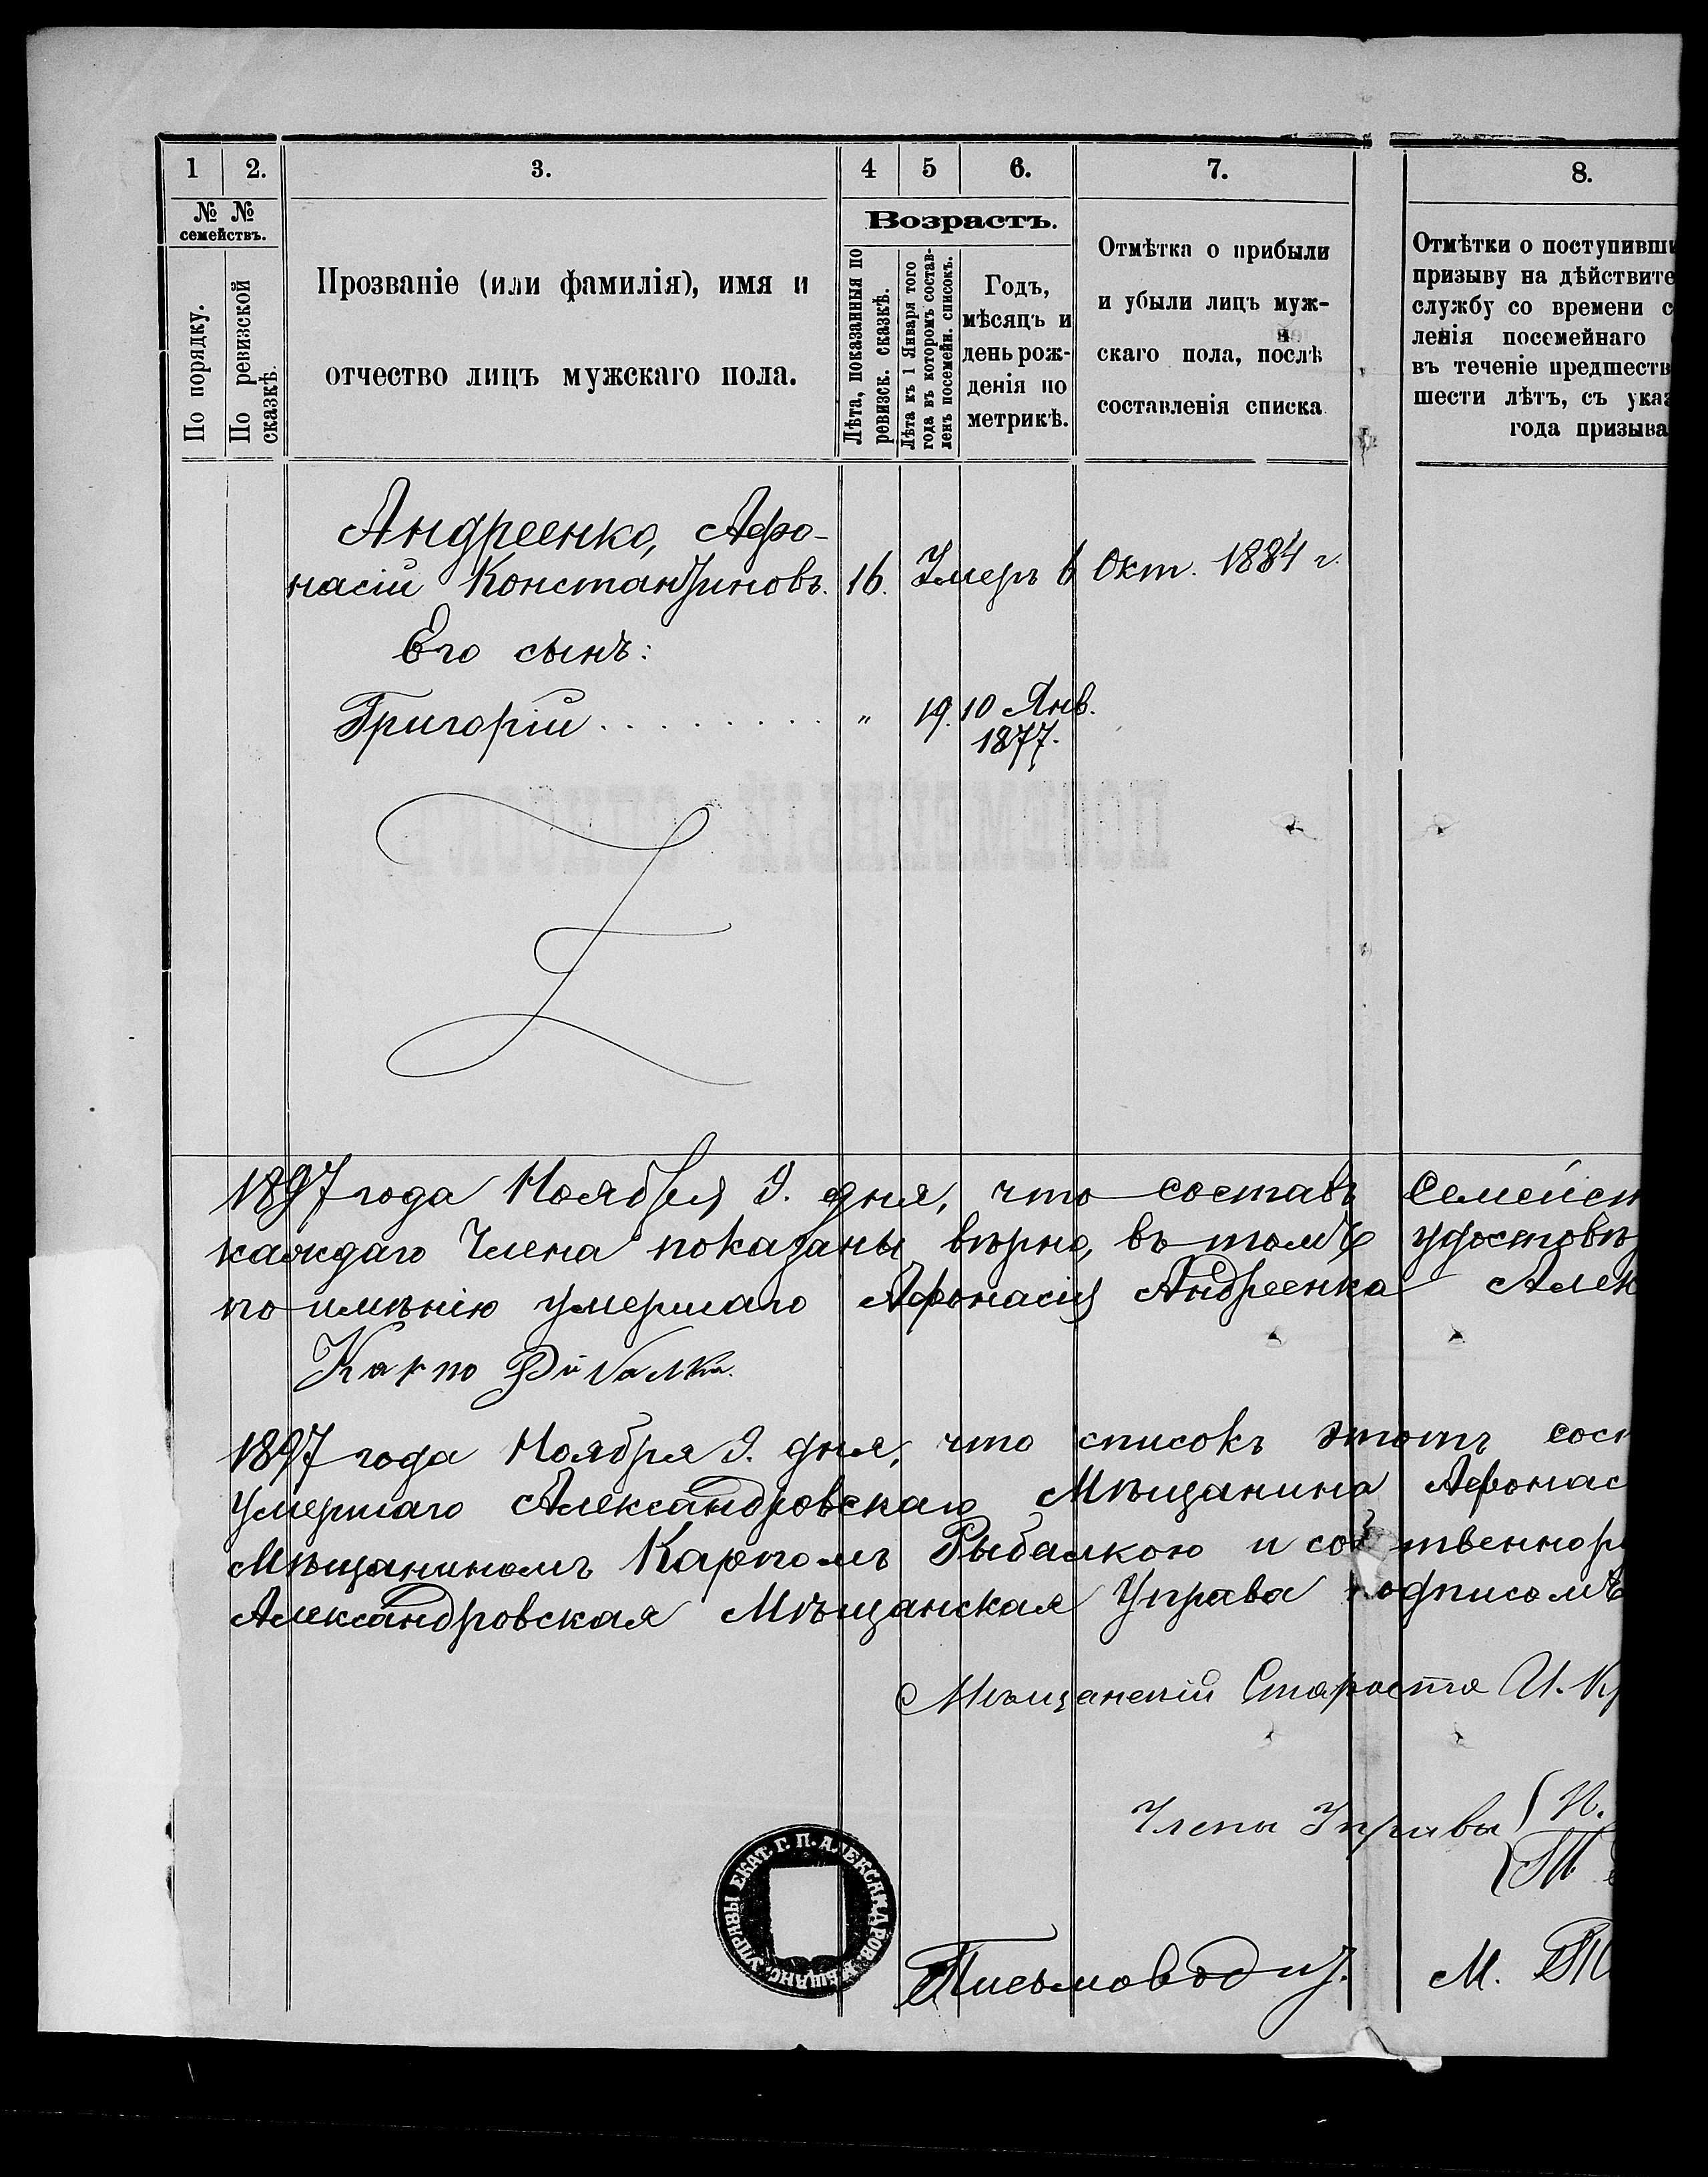 1 2. 3. 4 5 6. 7. 8.
№ №
семействъ.
По порядку.
По ревизской
сказкѣ.
Прозваніе (или фамилія), имя и
отчество лицъ мужскаго пола.
Возрастъ.
Лѣта, показанныя по
ревизск. сказкѣ.
Лѣта къ 1 Января того
года въ которомъ состав-
ленъ посемейн. списокъ.
Годъ,
мѣсяцъ и
день рож-
денія по
метрикѣ.
Отмѣтка о прибыли
и убыли лицъ муж-
скаго пола, послѣ
составленія списка
Отмѣтки о поступивши
призыву на дѣйствите
службу со времени с
ленія посемейнаго
въ теченіе предшеств
шести лѣтъ, съ указ
года призыва
Андреенко, Афо-
насій Константиновъ. 16. Умеръ 6 Окт. 1884 г.
Его сынъ:
Григорій . . . . . . . . . „ 19. 10 Янв.
1877.
1897 года Ноября 9. дня, что составъ Семейст
каждаго Члена показаны вѣрно, въ томъ удостовѣ
по имѣнію умершаго Афонасія Андреенка Алек
Карпо Рибалка.
1897 года Ноября 9. дня, что списокъ этотъ сост
умершаго Александровскаго Мѣщанина Афонас
Мѣщаниномъ Карпомъ Рыбалкою и собственнор
Александровская Мѣщанская Управа подписомъ
Мѣщанскій Староста И. Кр
Члены Управы { И.
Письмоводит. М.
МѢЩАНС. УПРАВЫ ЕКАТ. Г. П. АЛЕКСАНДРОВ.